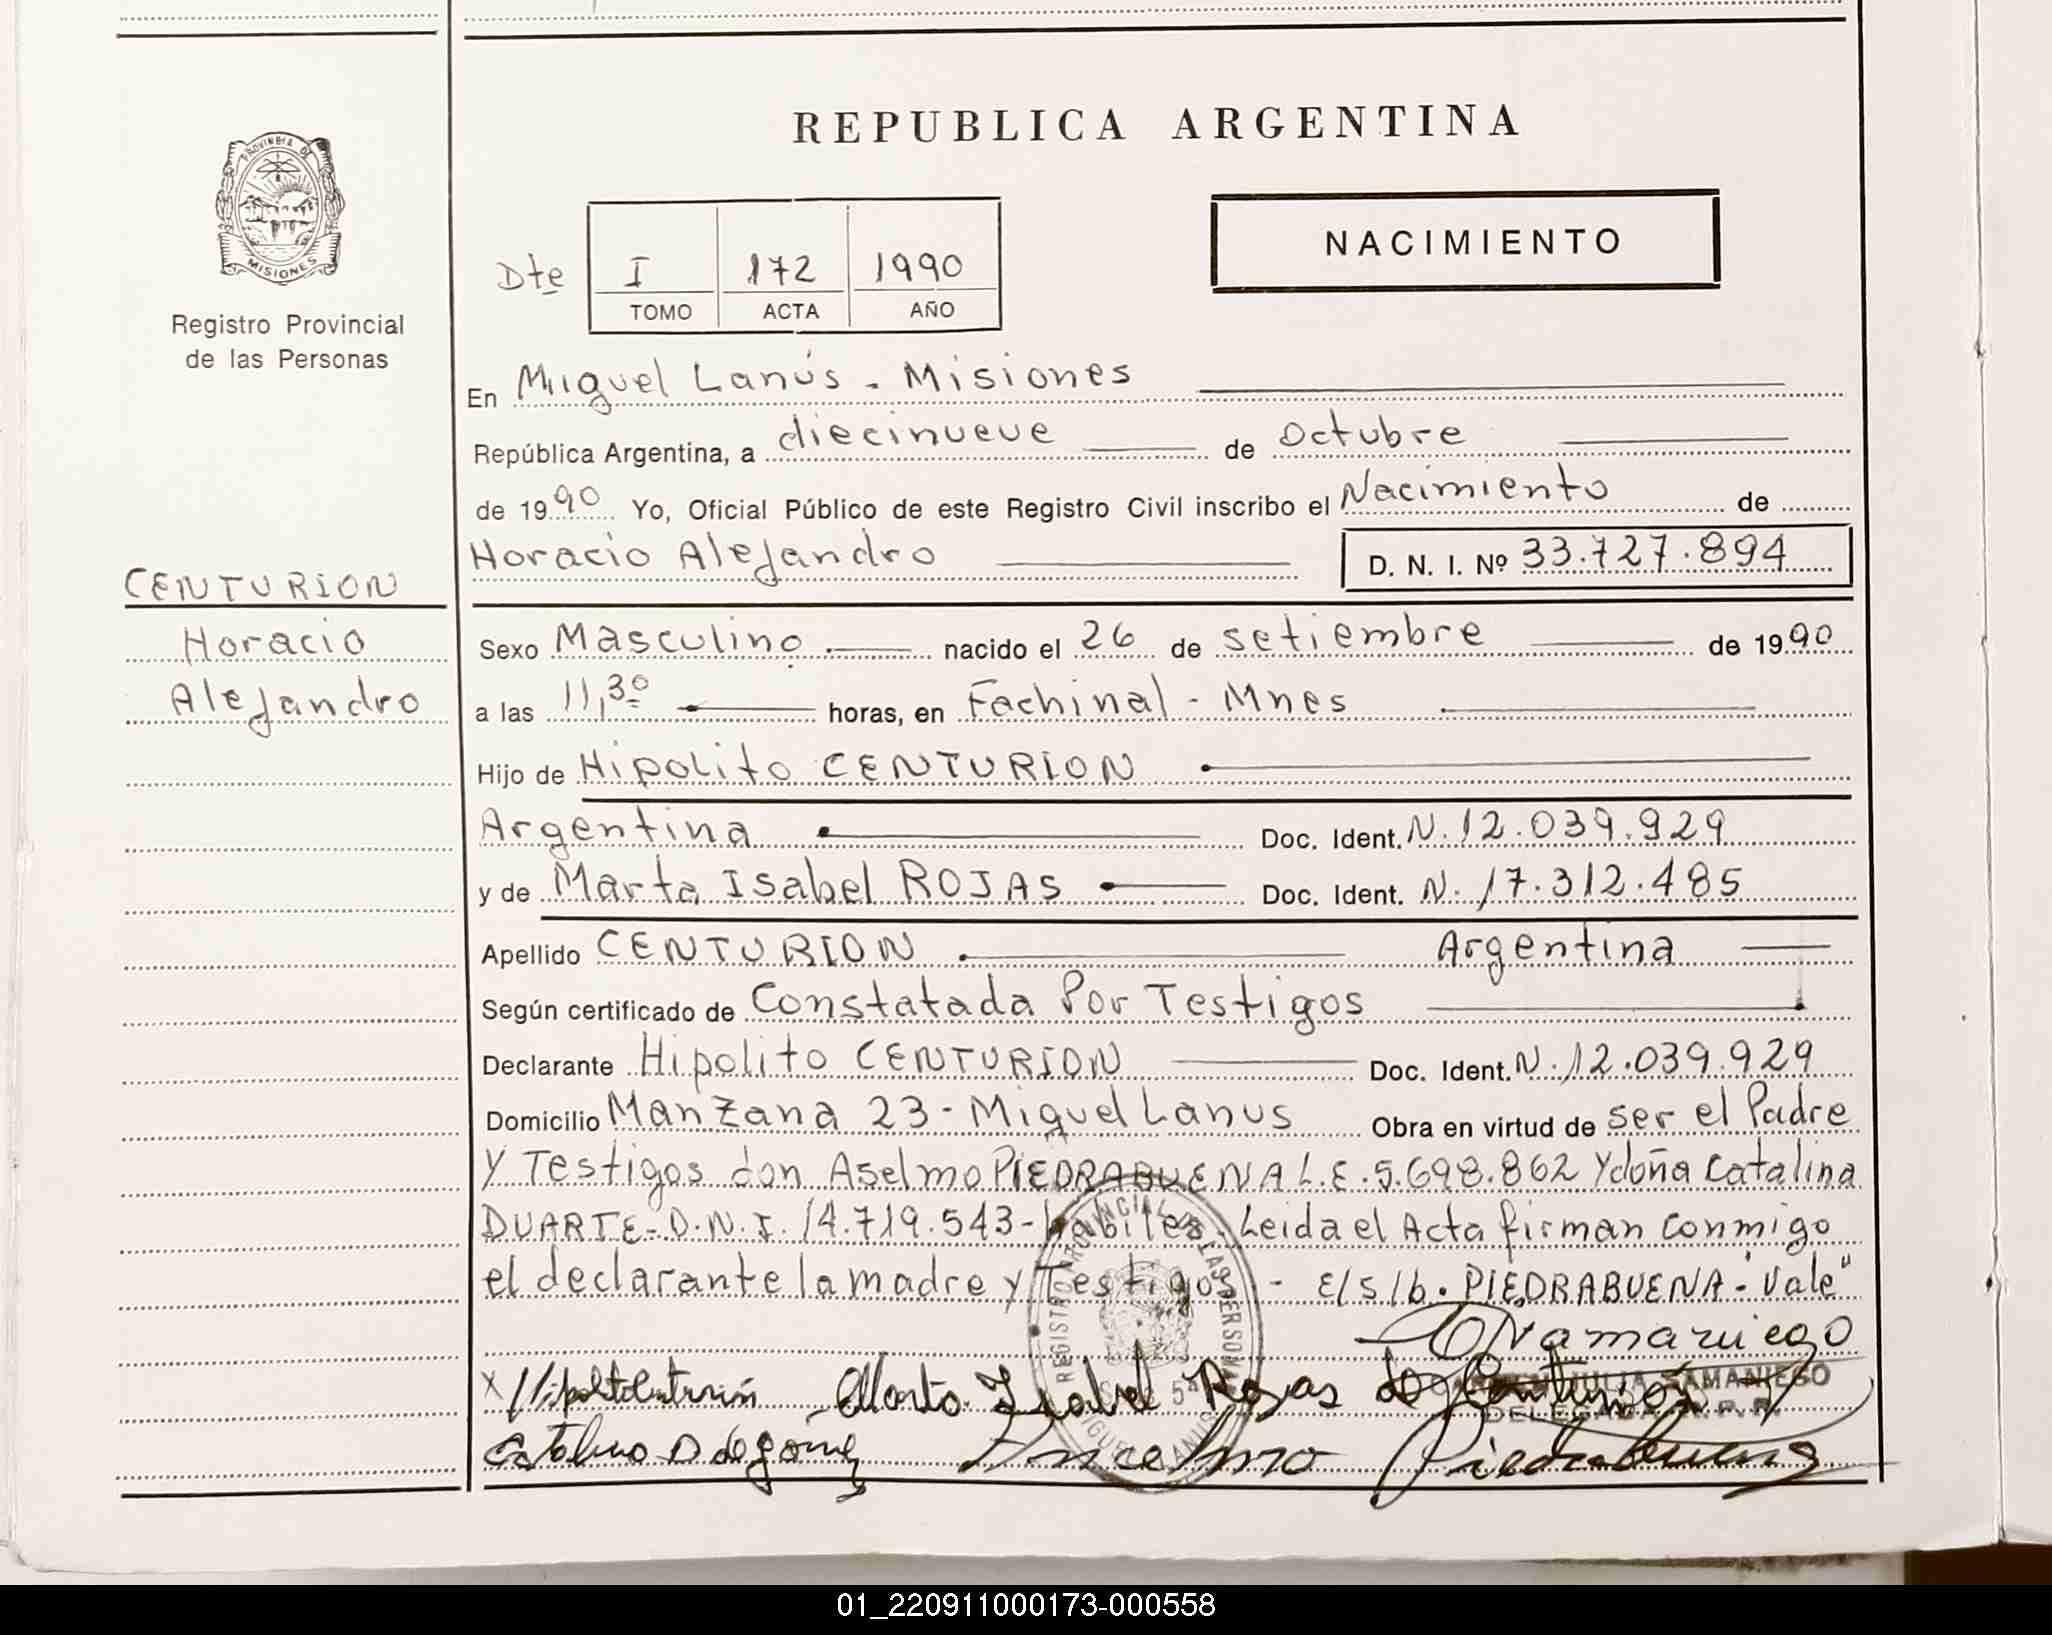 REPUBLICA ARGENTINA
PROVINCIA DE
MISIONES
Registro Provincial
de las Personas
NACIMIENTO
Dte I 172 1990
TOMO ACTA AÑO
En Miguel Lanús - Misiones
República Argentina, a diecinueve de Octubre
de 1990 Yo, Oficial Público de este Registro Civil inscribo el Nacimiento de
Horacio Alejandro D. N. I. Nº 33.727.894
CENTURION
Horacio
Alejandro
Sexo Masculino nacido el 26 de setiembre de 1990
a las 11,30 horas, en Fachinal - Mnes
Hijo de Hipolito CENTURION
Argentina Doc. Ident. N. 12.039.929
y de Marta Isabel ROJAS Doc. Ident. N. 17.312.485
Apellido CENTURION Argentina
Según certificado de Constatada Por Testigos
Declarante Hipolito CENTURION Doc. Ident. N. 12.039.929
Domicilio Manzana 23 - Miguel Lanus Obra en virtud de ser el Padre
y Testigos don Aselmo PIEDRABUENA L.E. 5.698.862 y doña Catalina
DUARTE - D.N.I. 14.719.543 - habiles. Leida el Acta firman conmigo
el declarante la madre y Testigos - E/s/b. PIEDRABUENA - "Vale"
REGISTRO PROVINCIAL DE LAS PERSONAS
x Hipolito Centurión Marta Isabel Rojas de Centurión
JULIA SAMANIEGO
DELEGADA R.P.P.
Catalina D de Gomez Anselmo Piedrabuena
01_220911000173-000558